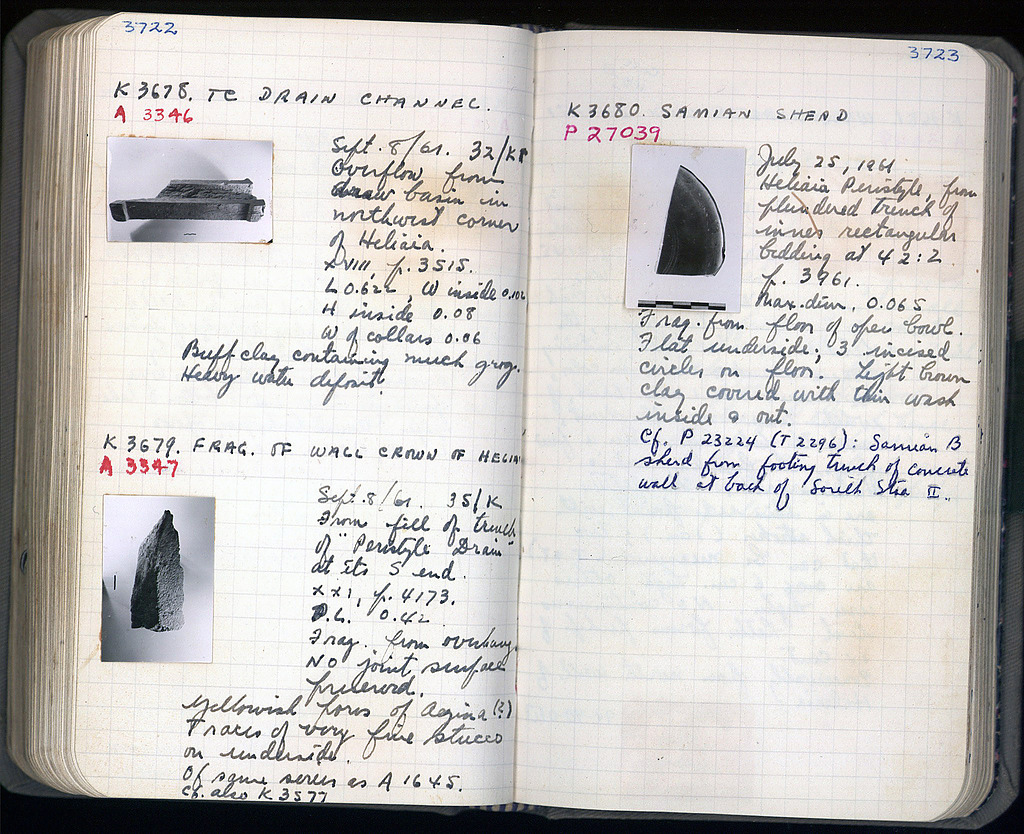 3722
K 3678. TC DRAIN CHANNEL.
A 3346
Sept. 8/61. 32/
Overflow from
draw basin in
northwest corner
of Heliaia.
XVIII, p. 3515.
L 0.622, W inside 0.102
H inside 0.08
W of collars 0.06
Buff clay containing much grog.
Heavy water deposit.
K 3679. FRAG. OF WALL CROWN OF HELIAI
A 3347
Sept. 8/61. 35/K
From fill of trench
of "Peristyle Drain"
at its S end.
XXI, p. 4173.
P.L. 0.42
Frag. from overhang.
NO joint surface
preserved.
Yellowish poros of Aegina (?)
Traces of very fine stucco
on underside.
Of same series as A 1645.
Cf. also K 3577
3723
K 3680. SAMIAN SHERD
P 27039
July 25, 1961
Heliaia Peristyle, from
plundered trench of
inner rectangular
bedding at 42:2.
p. 3961.
Max. dim. 0.065
Frag. from floor of open bowl.
Flat underside; 3 incised
circles on floor. Light brown
clay covered with thin wash
inside & out.
Cf. P 23224 (T 2296): Samian B
sherd from footing trench of concrete
wall at back of South Stoa II.